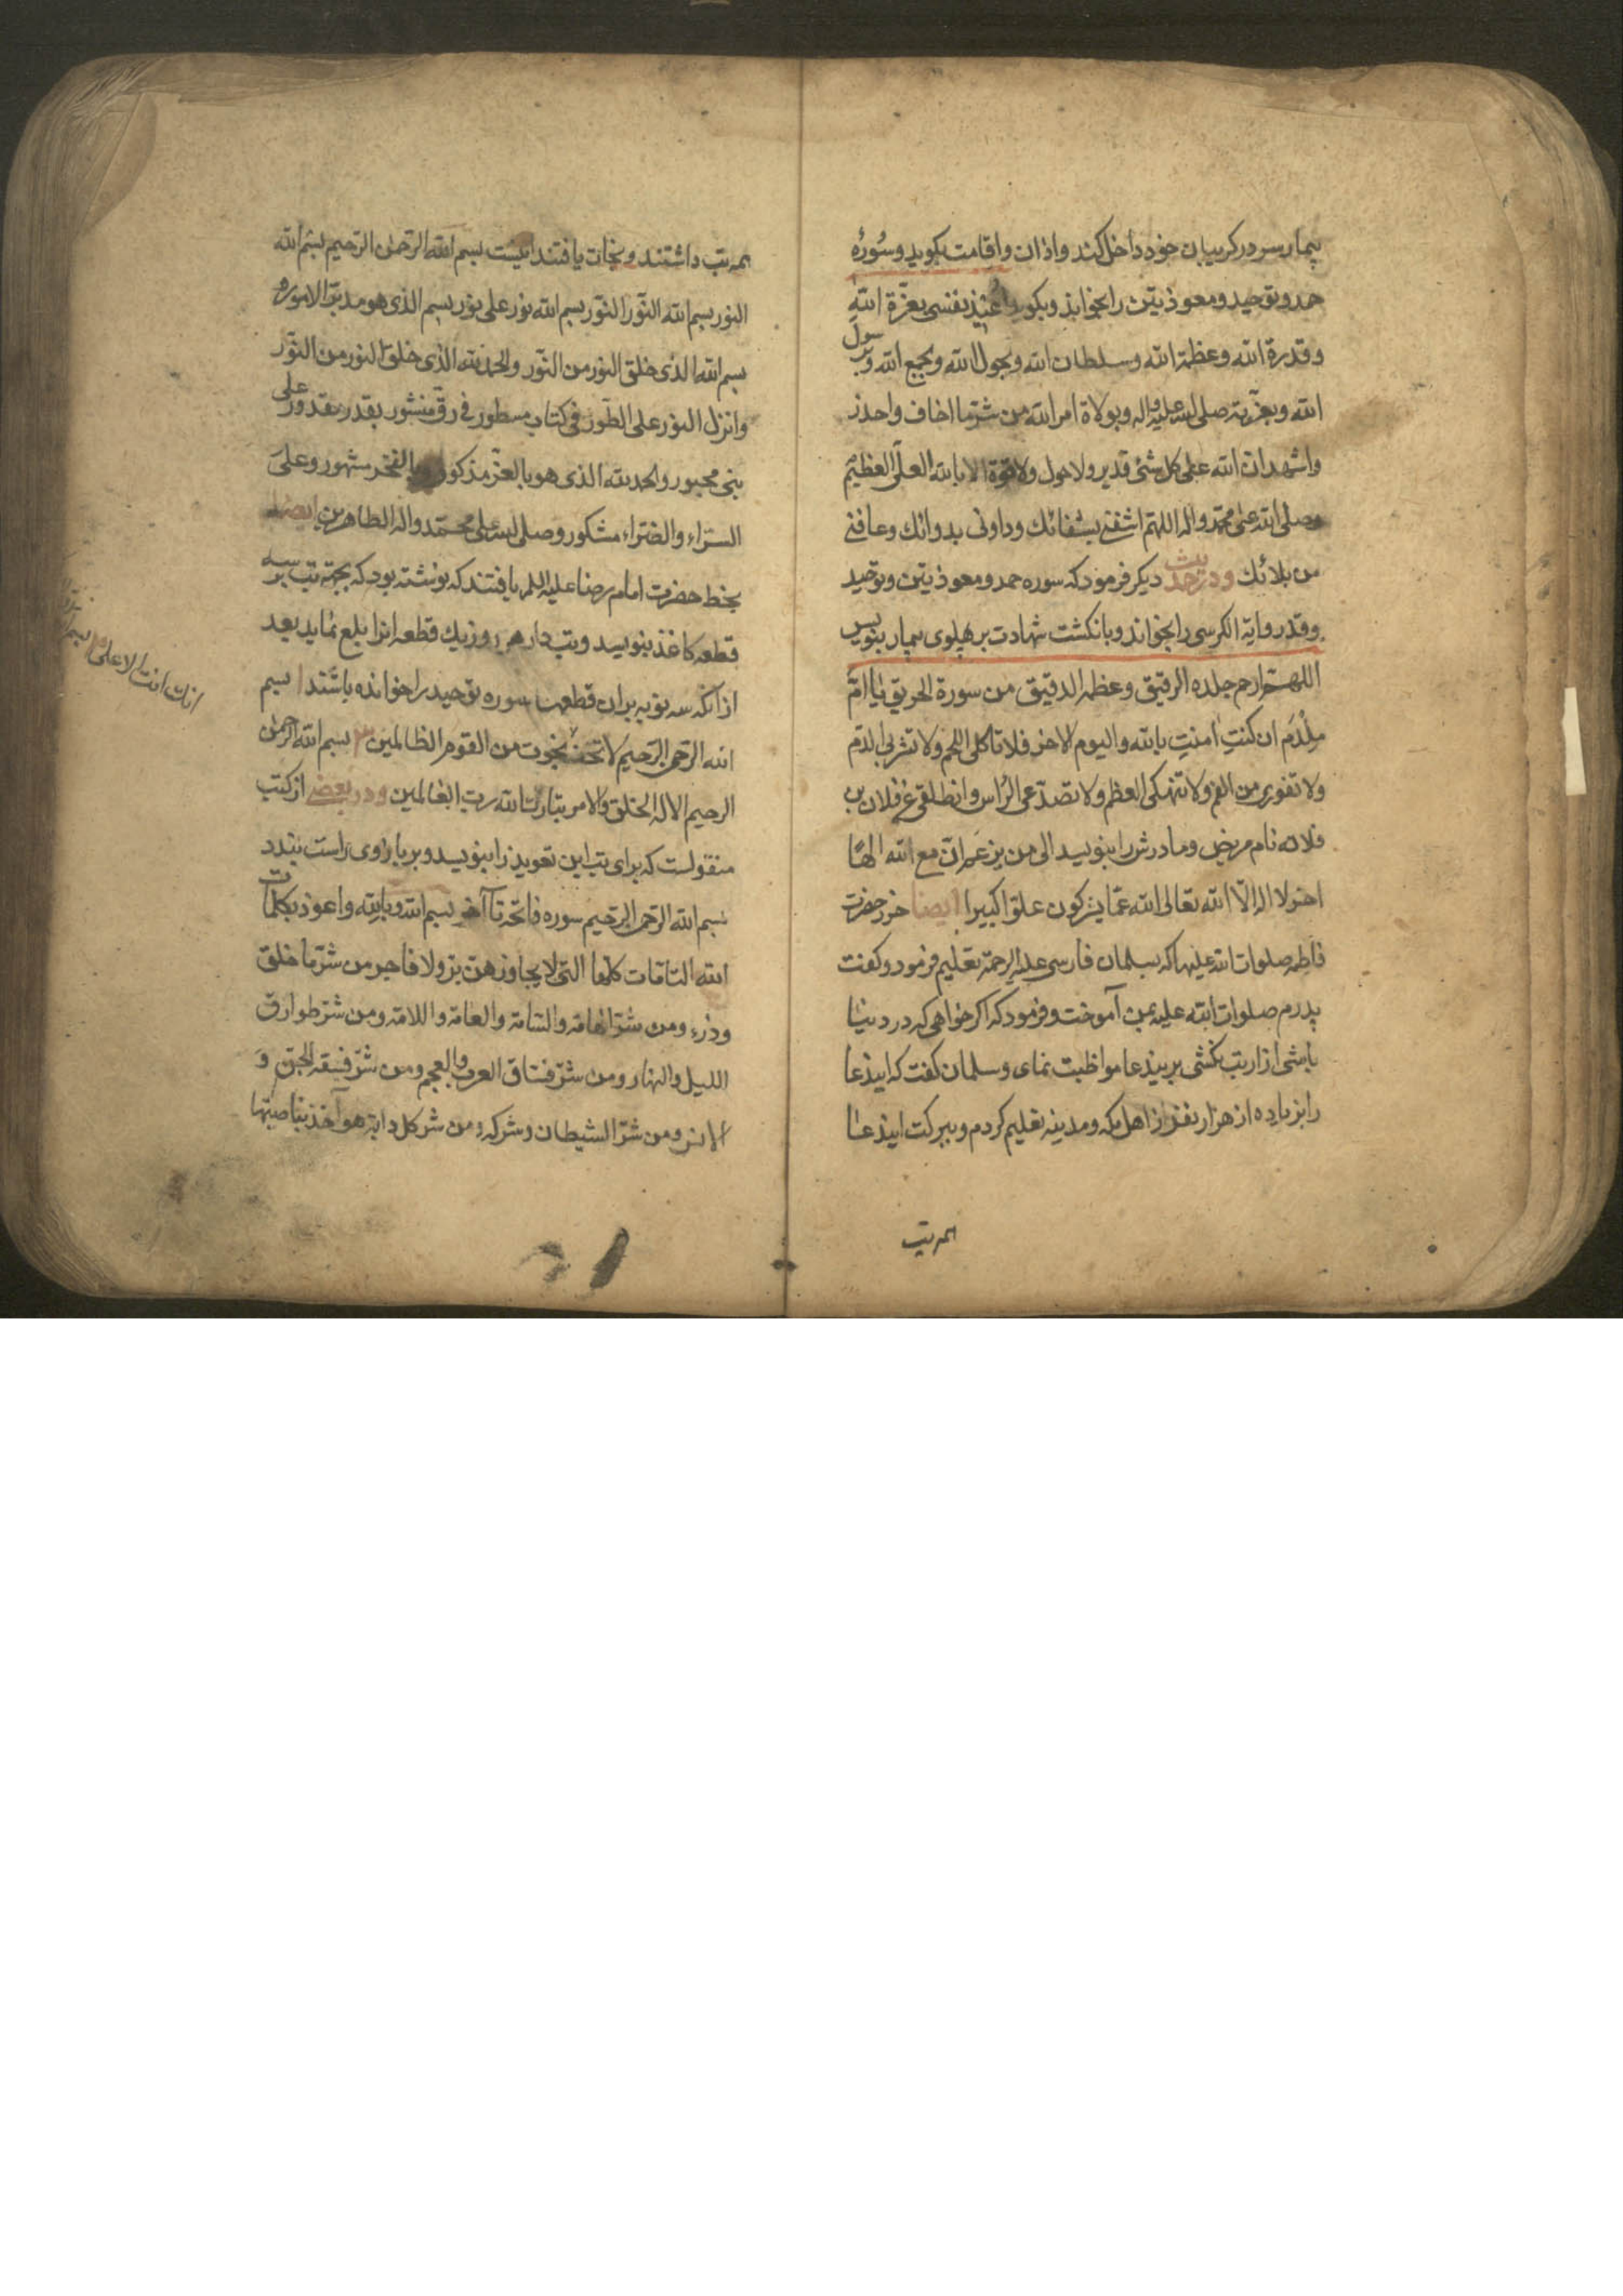 بیمار سر در کریبان خود داخل کند و اذان و اقامت بکوید و سُورهٔ
حمد و توحید و معوذیتن را بخواند و بکوید اُعیذ نفسی بعزّة الله
و قدرة الله و عظمة الله و سلطان الله و بجول الله و بجمع الله و برسول
الله و بعزته صلی الله علیه و اله و بولاة امر الله من شرّ ما اخاف و احذر
و اشهد ان الله علی کل شئ قدیر و لا حول و لا قوة الا بالله العلّی العظیم
و صلی الله علی محمد و اله اللهم اشفنی بشفائک و داونی بدوائک و عافنی
من بلائک و در حدیث دیکر فرمود که سوره حمد و معوذیتن و توحید
و قدر و ایة الکرسی را بخواند و با نکشت شهادت بر پهلوی بیمار بنویس
اللهم ارحم جلده الرقیق و عظمه الدقیق من سورة الحریق یا امّ
ملْدَم ان کنتِ امنتِ بالله و الیوم الاخر فلا تاکلی اللحم و لا تشربی الدم
و لا تفوری من الفم و لا تنهکی العظم و لا تصدّعی الرّاس و انطلقی عن فلان بن
فلانه نام مریض و مادرش را بنویسد الی من یزعم ان مع الله الهًا
اخر لا اله الّا الله تعالی الله عمّا یشرکون علوّا کبیرا ایضا حرز حضرت
فاطمه صلوات الله علیها که بسلمان فارسی علیه الرحمة تعلیم فرمود و کفت
پدرم صلوات الله علیه بمن آموخت و فرمود که اکر خواهی که در دنیا
باشی ازار تب نکشی بر ایندعا مواظبت نمای و سلمان کفت که ایندعا
را بزیاده از هزار نفر از اهل مکه و مدینه تعلیم کردم و ببرکت ایندعا
همه تب
همه تب داشتند و نجات یافتند اینست بسم الله الرّحمن الرّحیم بسم الله
النور بسم الله النّور النّور بسم الله نور علی نور بسم الذی هو مدبّر الامور
بسم الله الذی خلق النّور من النّور و الحمد لله الذّی خلق النور من النّور
و انزل النور علی الطّور فی کتاب مسطور فی رقّ منشور بقدر مقدور علی
نبی محبور و الحمد لله الذی هو بالعزّ مذکور و بالفخر مشهور و علی
السّراء و الضّراء مشکور و صلی الله علی محمّد و اله الطاهرین ایضا
بخط حضرت امام رضا علیه السلم یافتند که نوشته بود که بجهة تب بر سه
قطعه کاغذ بنویسد و تب دار هر روز یک قطعه انرا بلع نماید بعد
از انکه سه نوبه بر ان قطعها سوره توحید را خوانده باشند ا بسم
الله الرّحمن الرّحیم لا تخف نجوت من القوم الظالمین ۳ بسم الله الرحمن
الرحیم الا له الخلق و الامر تبارک الله رب العالمین و در بعضی از کتب
منقولست که برای تب این تعویذ را بنویسد و بر بازوی راست بندد
بسم الله الرّحمن الرّحیم سوره فاتحه تا آخر بسم الله و بالله و اعوذ بکلمات
الله التامّات کلّها التّی لا یجاوزهنّ برّ و لا فاجر من شرّ ما خلق
و ذرء و من شرّ الهامّة و السّامّة و العامّة و اللامّة و من شرّ طوارق
اللیل و النهار و من شرّ فسّاق العرب و العجم و من شرّ فسقة الجنّ و
الانس و من شرّ الشیطان و شرکه و من شر کل دابة هو آخذ بناصیتها
انک انت الاعلی